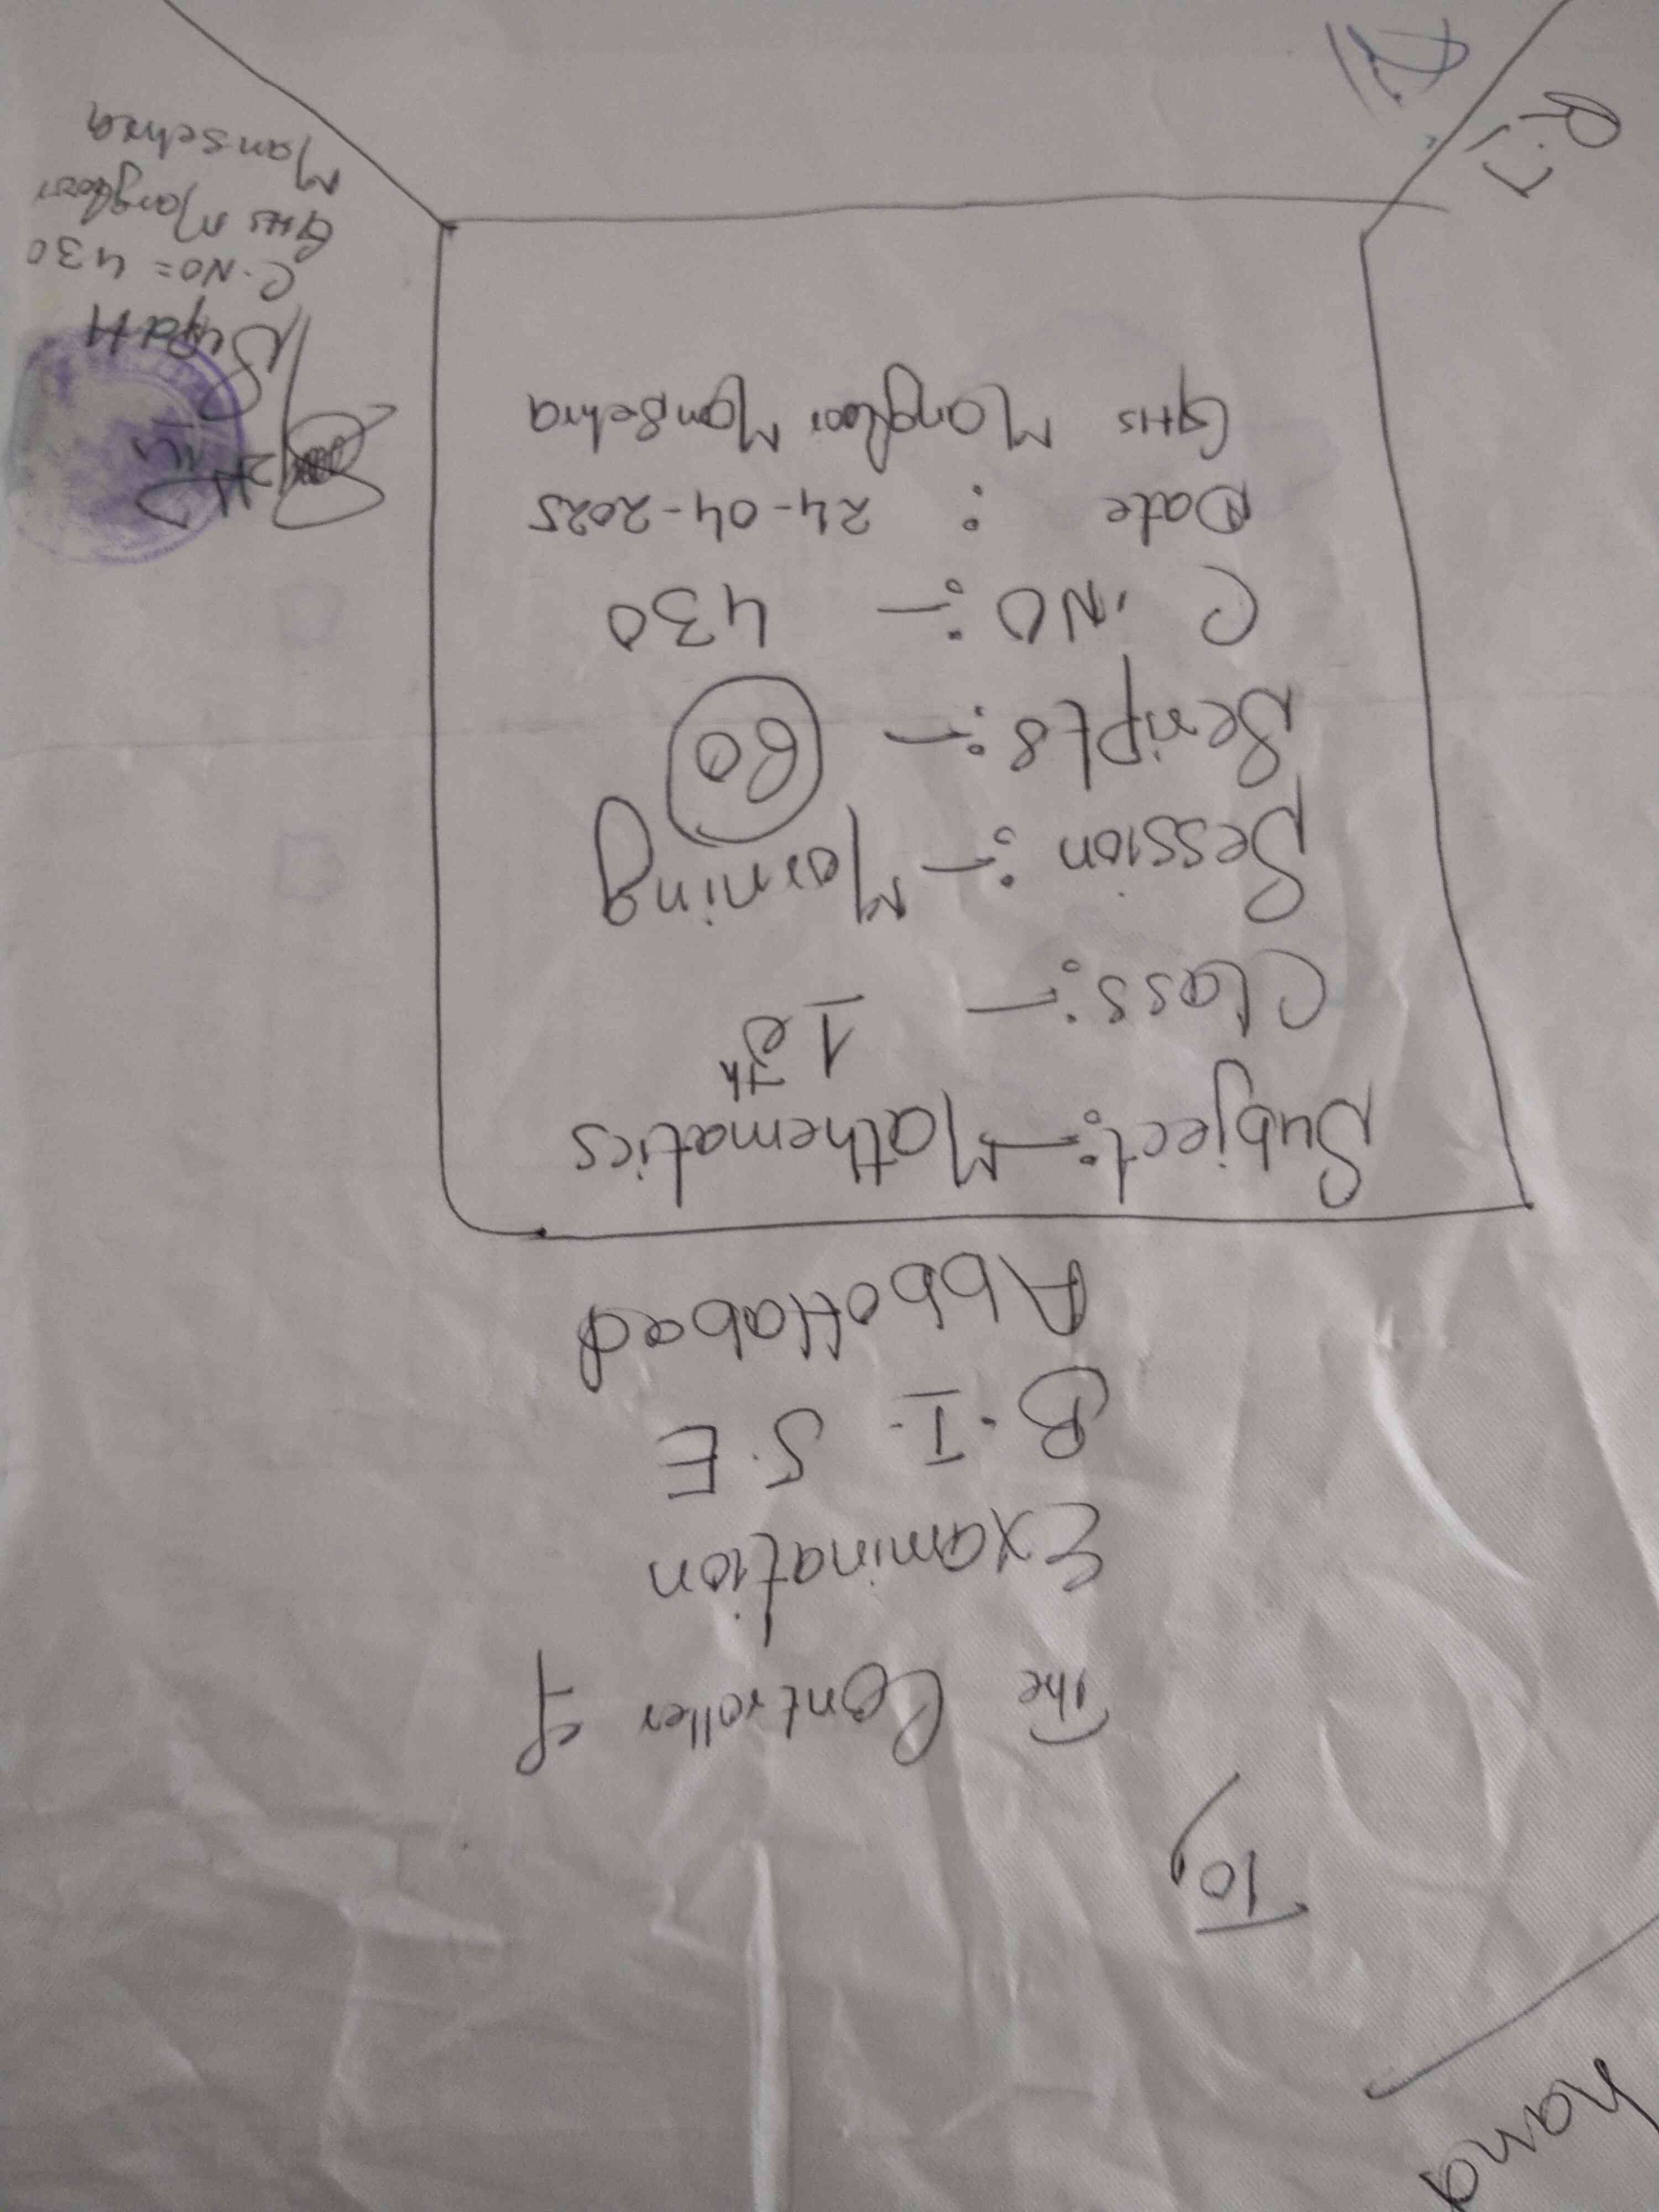 To,
The Controller of
Examination
B.I.S.E
Abbottabad
Subject:- Mathematics
Class:- 10th
Session:- Morning
Scripts:- 60
C.NO:- 430
Date : 24-04-2025
GHS Mangloor Mansehra
Supdtt
C.NO= 430
GHS Mangloor
Mansehra